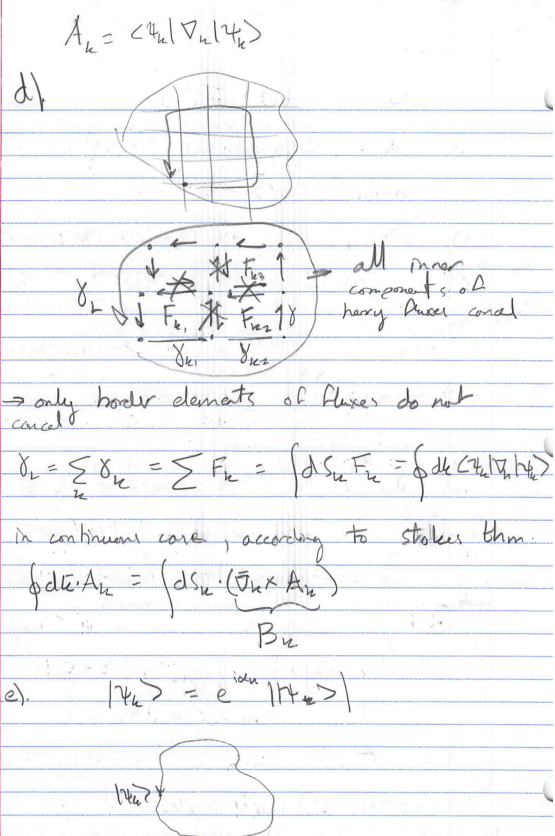 A_k = <ψ_k|∇_k|ψ_k>
d).
F_k3
γ_L
F_k1
F_k2
γ
γ_k1
γ_k2
→ all inner
components of
berry fluxes cancel
→ only border elements of fluxes do not
cancel
γ_L = Σ_k γ_k = Σ F_k = ∫dS_k F_k = ∮dk <ψ_k|∇_k|ψ_k>
in continuous case, according to stokes thm.
∮dk̄·A_k = ∫dS_k·(∇̄_k × A_k)
B_k
e). |ψ_k> = e^{iα_k} ||ψ_k>|
|ψ_k>